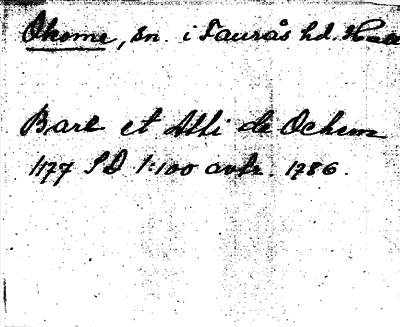 Okome, sn. i Faurås hd. Hall
Bare et Atli de Ochem
1177 SD 1:100 avtr. 1786.